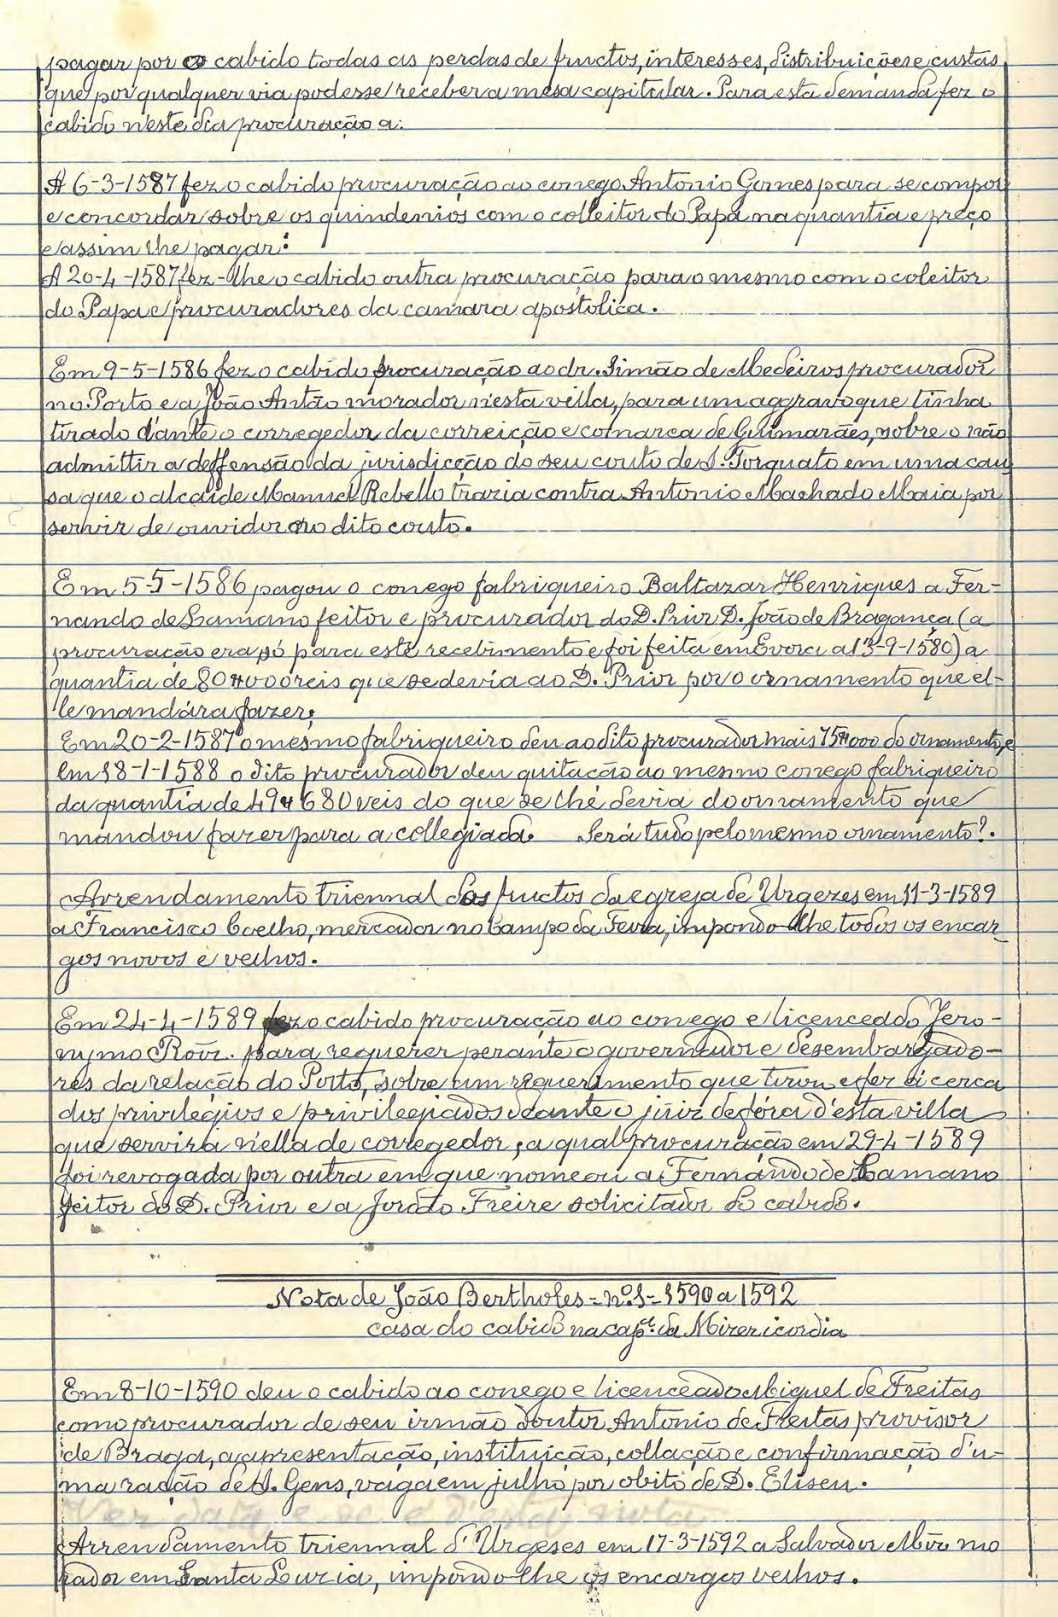 pagar por o cabido todas as perdas de fructos, interesses, distribuições e custas
que por qualquer via podesse receber a mesa capitular. Para esta demanda fez o
cabido n'este dia procuração a.
A 6-3-1587 fez o cabido procuração ao conego Antonio Gomes para se compor
e concordar sobre os quindenios com o colleitor do Papa na quantia e preço
e assim lhe pagar.
A 20-4-1587 fez-lhe o cabido outra procuração para o mesmo com o coleitor
do Papa e procuradores da camara apostolica.
Em 9-5-1586 fez o cabido procuração ao dr. Simão de Medeiros procurador
no Porto e a João Antão morador n'esta villa, para um aggravo que tinha
tirado d'ante o corregedor da correição e comarca de Guimarães, sobre o não
admittir a deffensão da jurisdicção do seu couto de S. Torquato em uma cau
sa que o alcaide Manuel Rebello trazia contra Antonio Machado Maia por
servir de ouvidor no dito couto.
Em 5-5-1586 pagou o conego fabriqueiro Baltazar Henriques a Fer-
nando de Lamano feitor e procurador do D. Prior D. João de Bragança (a
procuração era só para este recebimento e foi feita em Evora a 13-9-1580) a
quantia de 80#000 reis que se devia ao D. Prior por o ornamento que el-
le mandára fazer;
Em 20-2-1587 o mesmo fabriqueiro deu ao dito procurador mais 75#000 do ornamento, e
em 18-1-1588 o dito procurador deu quitação ao mesmo conego fabriqueiro
da quantia de 49#680 reis do que se lhe devia do ornamento que
mandou fazer para a collegiada. Será tudo pelo mesmo ornamento?.
Arrendamento triennal dos fructos da egreja de Urgezes em 11-3-1589
a Francisco Coelho, mercador no Campo da Feira, impondo-lhe todos os encar
gos novos e velhos.
Em 24-4-1589 fez o cabido procuração ao conego e licenceado Jero-
nymo Roiz. para requerer perante o governador e desembargado-
res da relação do Porto, sobre um requerimento que tirou e fez ácerca
dos privilegios e privilegiados deante o juiz de fóra d'esta villa
que servira n'ella de corregedor; a qual procuração em 29-4-1589
foi revogada por outra em que nomeou a Fernando de Lamano
feitor do D. Prior e a Jordão Freire solicitador do cabido.
Nota de João Bertholes = nº. 1 - 1590 a 1592
casa do cabido na capª. da Mizericordia
Em 8-10-1590 deu o cabido ao conego e licenceado Miguel de Freitas
como procurador de seu irmão doutor Antonio de Freitas provisor
de Braga, a apresentação, instituição, collação e confirmação d'u-
ma ração de S. Gens, vaga em julho por obito de D. Eliseu.
Ver data e se é d'esta nota
Arrendamento triennal d'Urgeses em 17-3-1592 a Salvador mo
rador em Santa Luzia, impondo-lhe os encargos velhos.